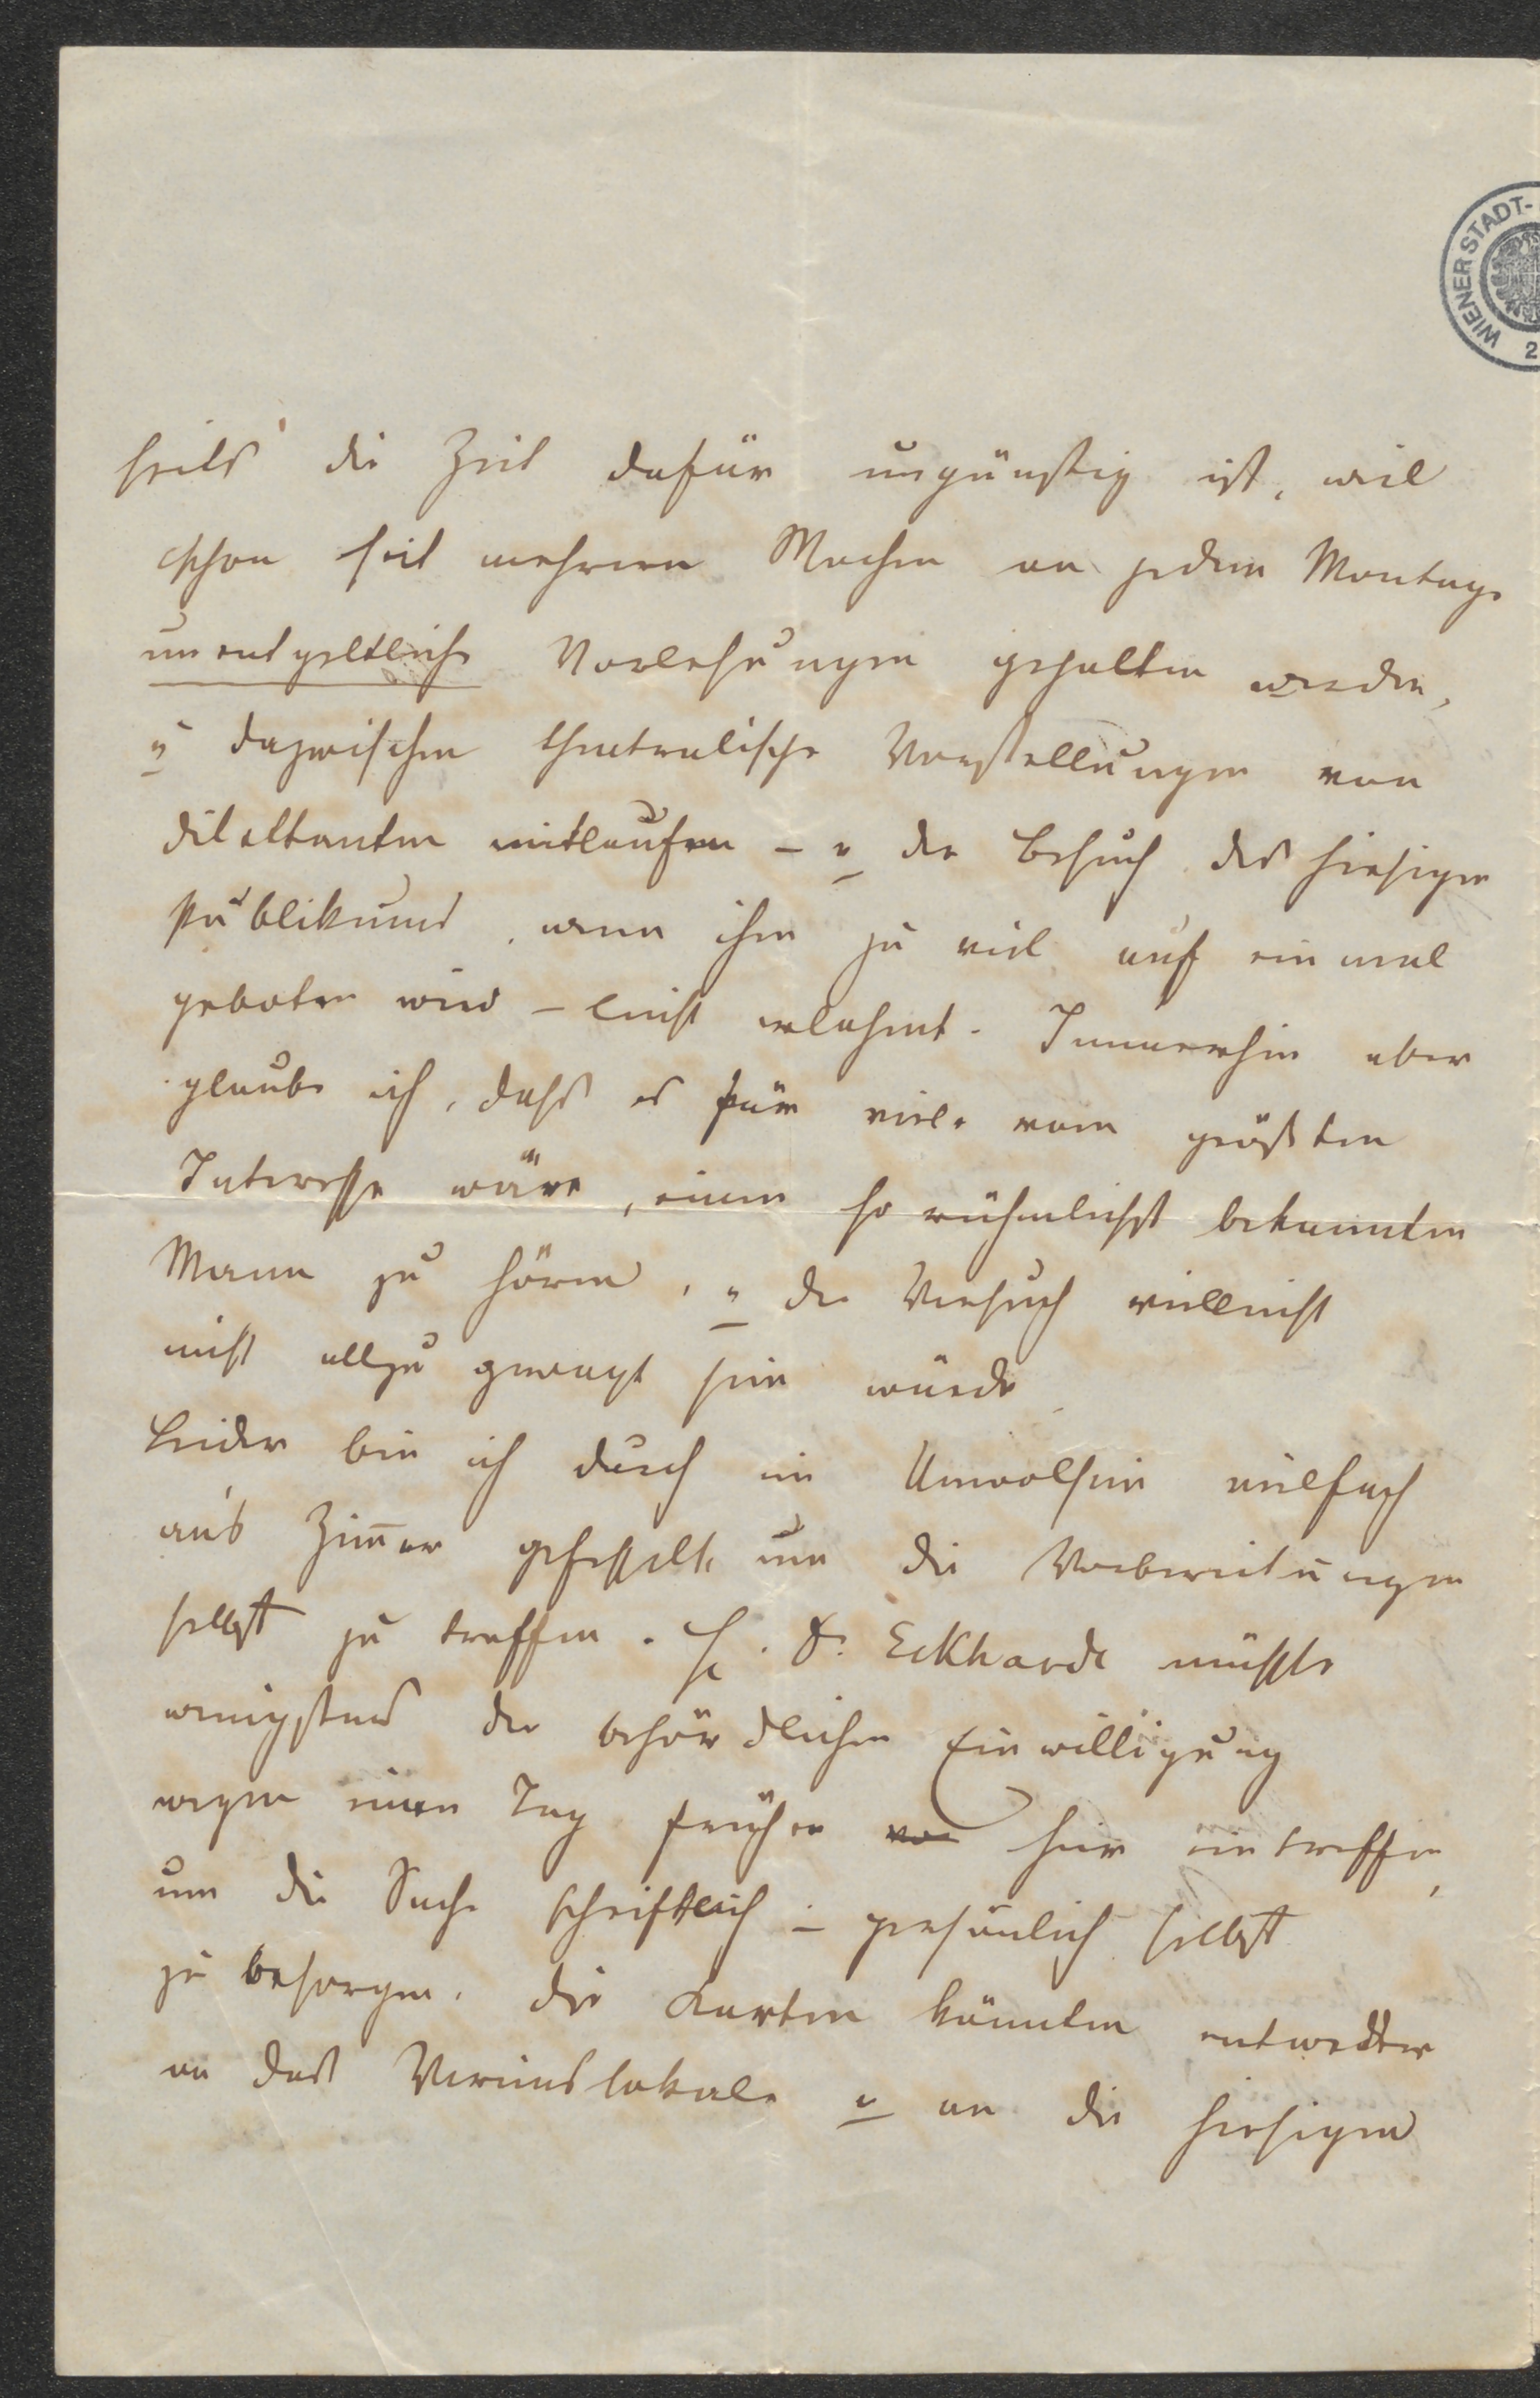 WIENER STADT-
2
seits die Zeit dafür ungünstig ist, weil
schon seit mehreren Wochen an jedem Montage
unentgeltliche Vorlesungen gehalten werden,
u dazwischen theatralische Vorstellungen von
Dilettanten mitlaufen – u der Besuch des hiesigen
Publikums, wenn ihm zu viel auf einmal
geboten wird – leicht erlahmt. Immerhin aber
glaube ich, dass es für viele vom größten
Interesse wäre, einen so rühmlichst bekannten
Mann zu hören, u der Versuch vielleicht
nicht allzu gewagt sein würde.
Leider bin ich durch ein Unwolsein vielfach
an's Zimmer gefesselt, um die Vorbereitungen
selbst zu treffen. H. Dr. Eckhardt müsste
wenigstens der behördlichen Einwilligung
wegen einen Tag früher hier eintreffen,
um die Sache schriftlich – persönlich selbst
zu besorgen. Die Karten könnten entweder
an das Vereinslokale u an die hiesigen